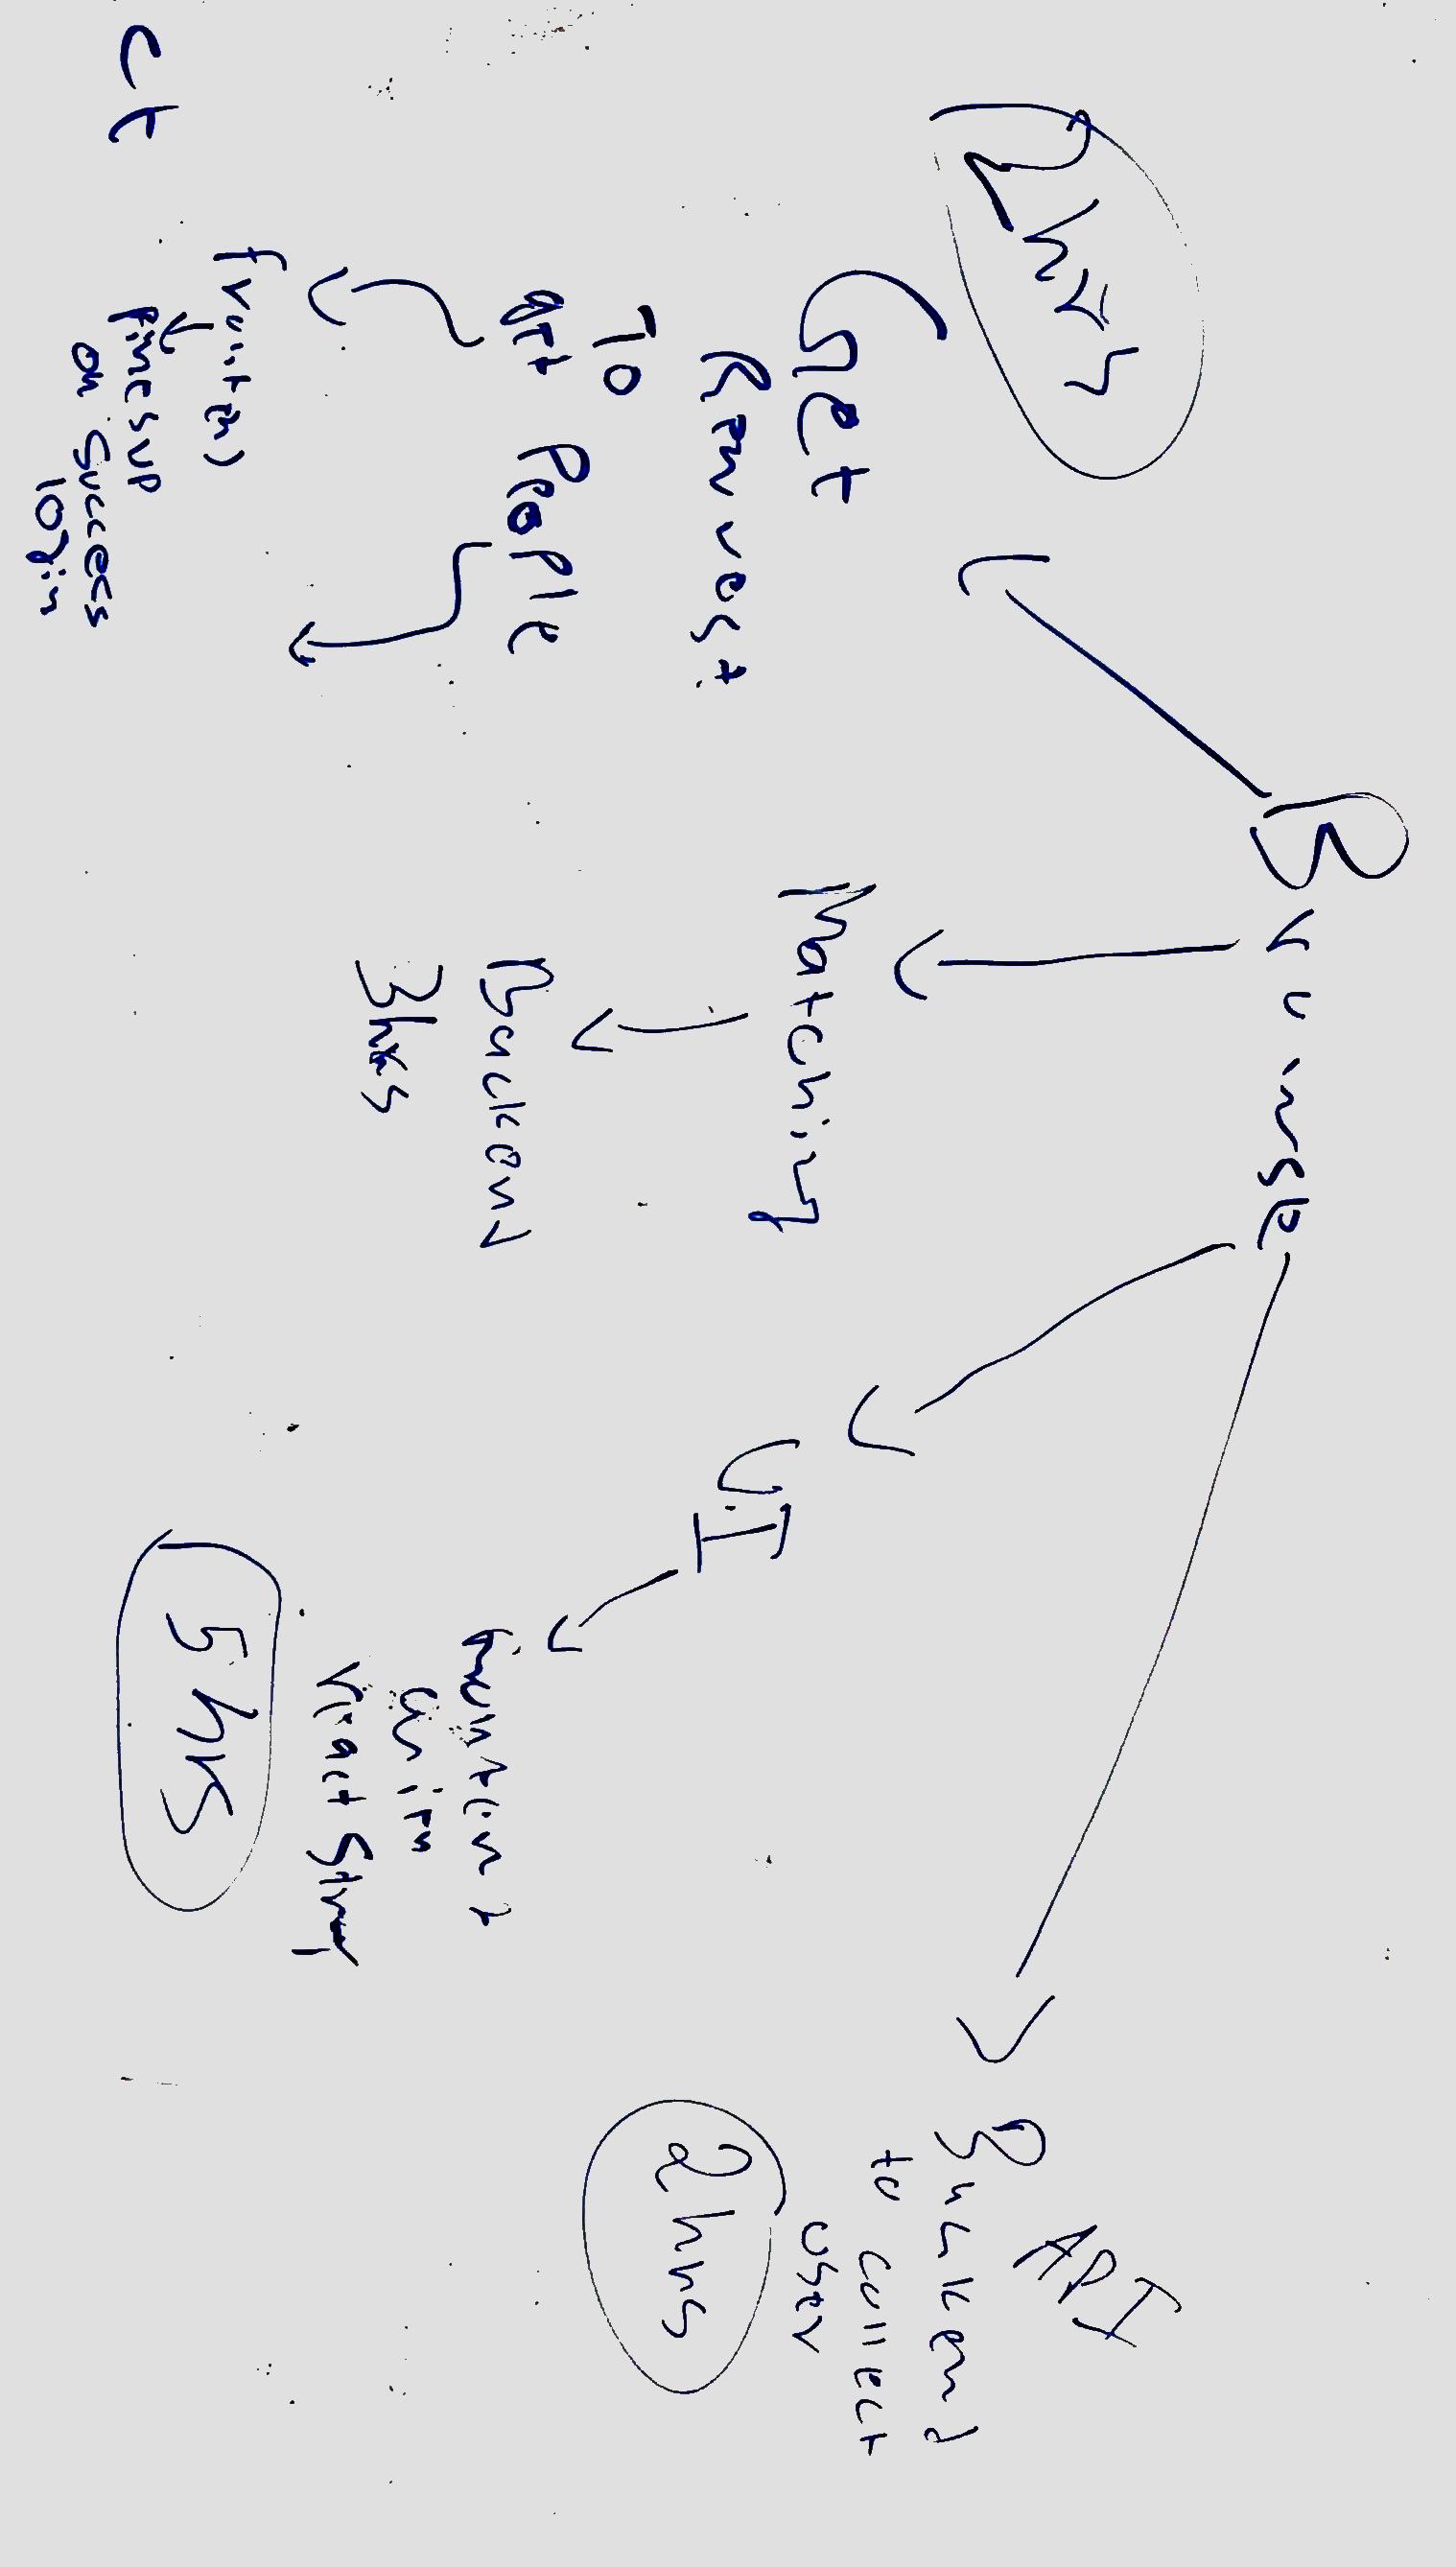 Browse
2hrs
Get
Request
To
get People
frontend
fires up
on success
login
ct
Matching
Backend
3hrs
U.I
frontend
react strap
5 hrs
API
Backend
to collect
user
2 hrs